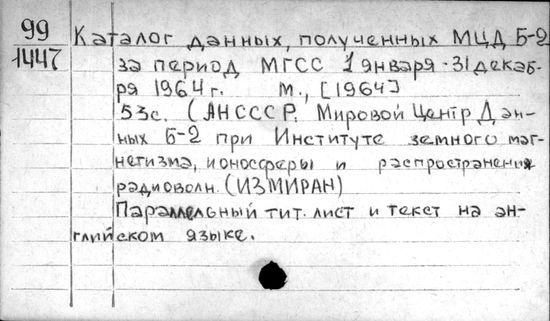 99 Каталог данных, полученных МЦД Б-2
1447 за период МГСС 1 января - 31 декаб-
ря 1964 г. М., [1964]
53с. (АНСССР. Мировой Центр Дан-
ных Б-2 при Институте земного маг-
нетизма, ионосферы и распространения
радиоволн. (ИЗМИРАН)
Параллельный тит. лист и текст на ан-
глийском языке.